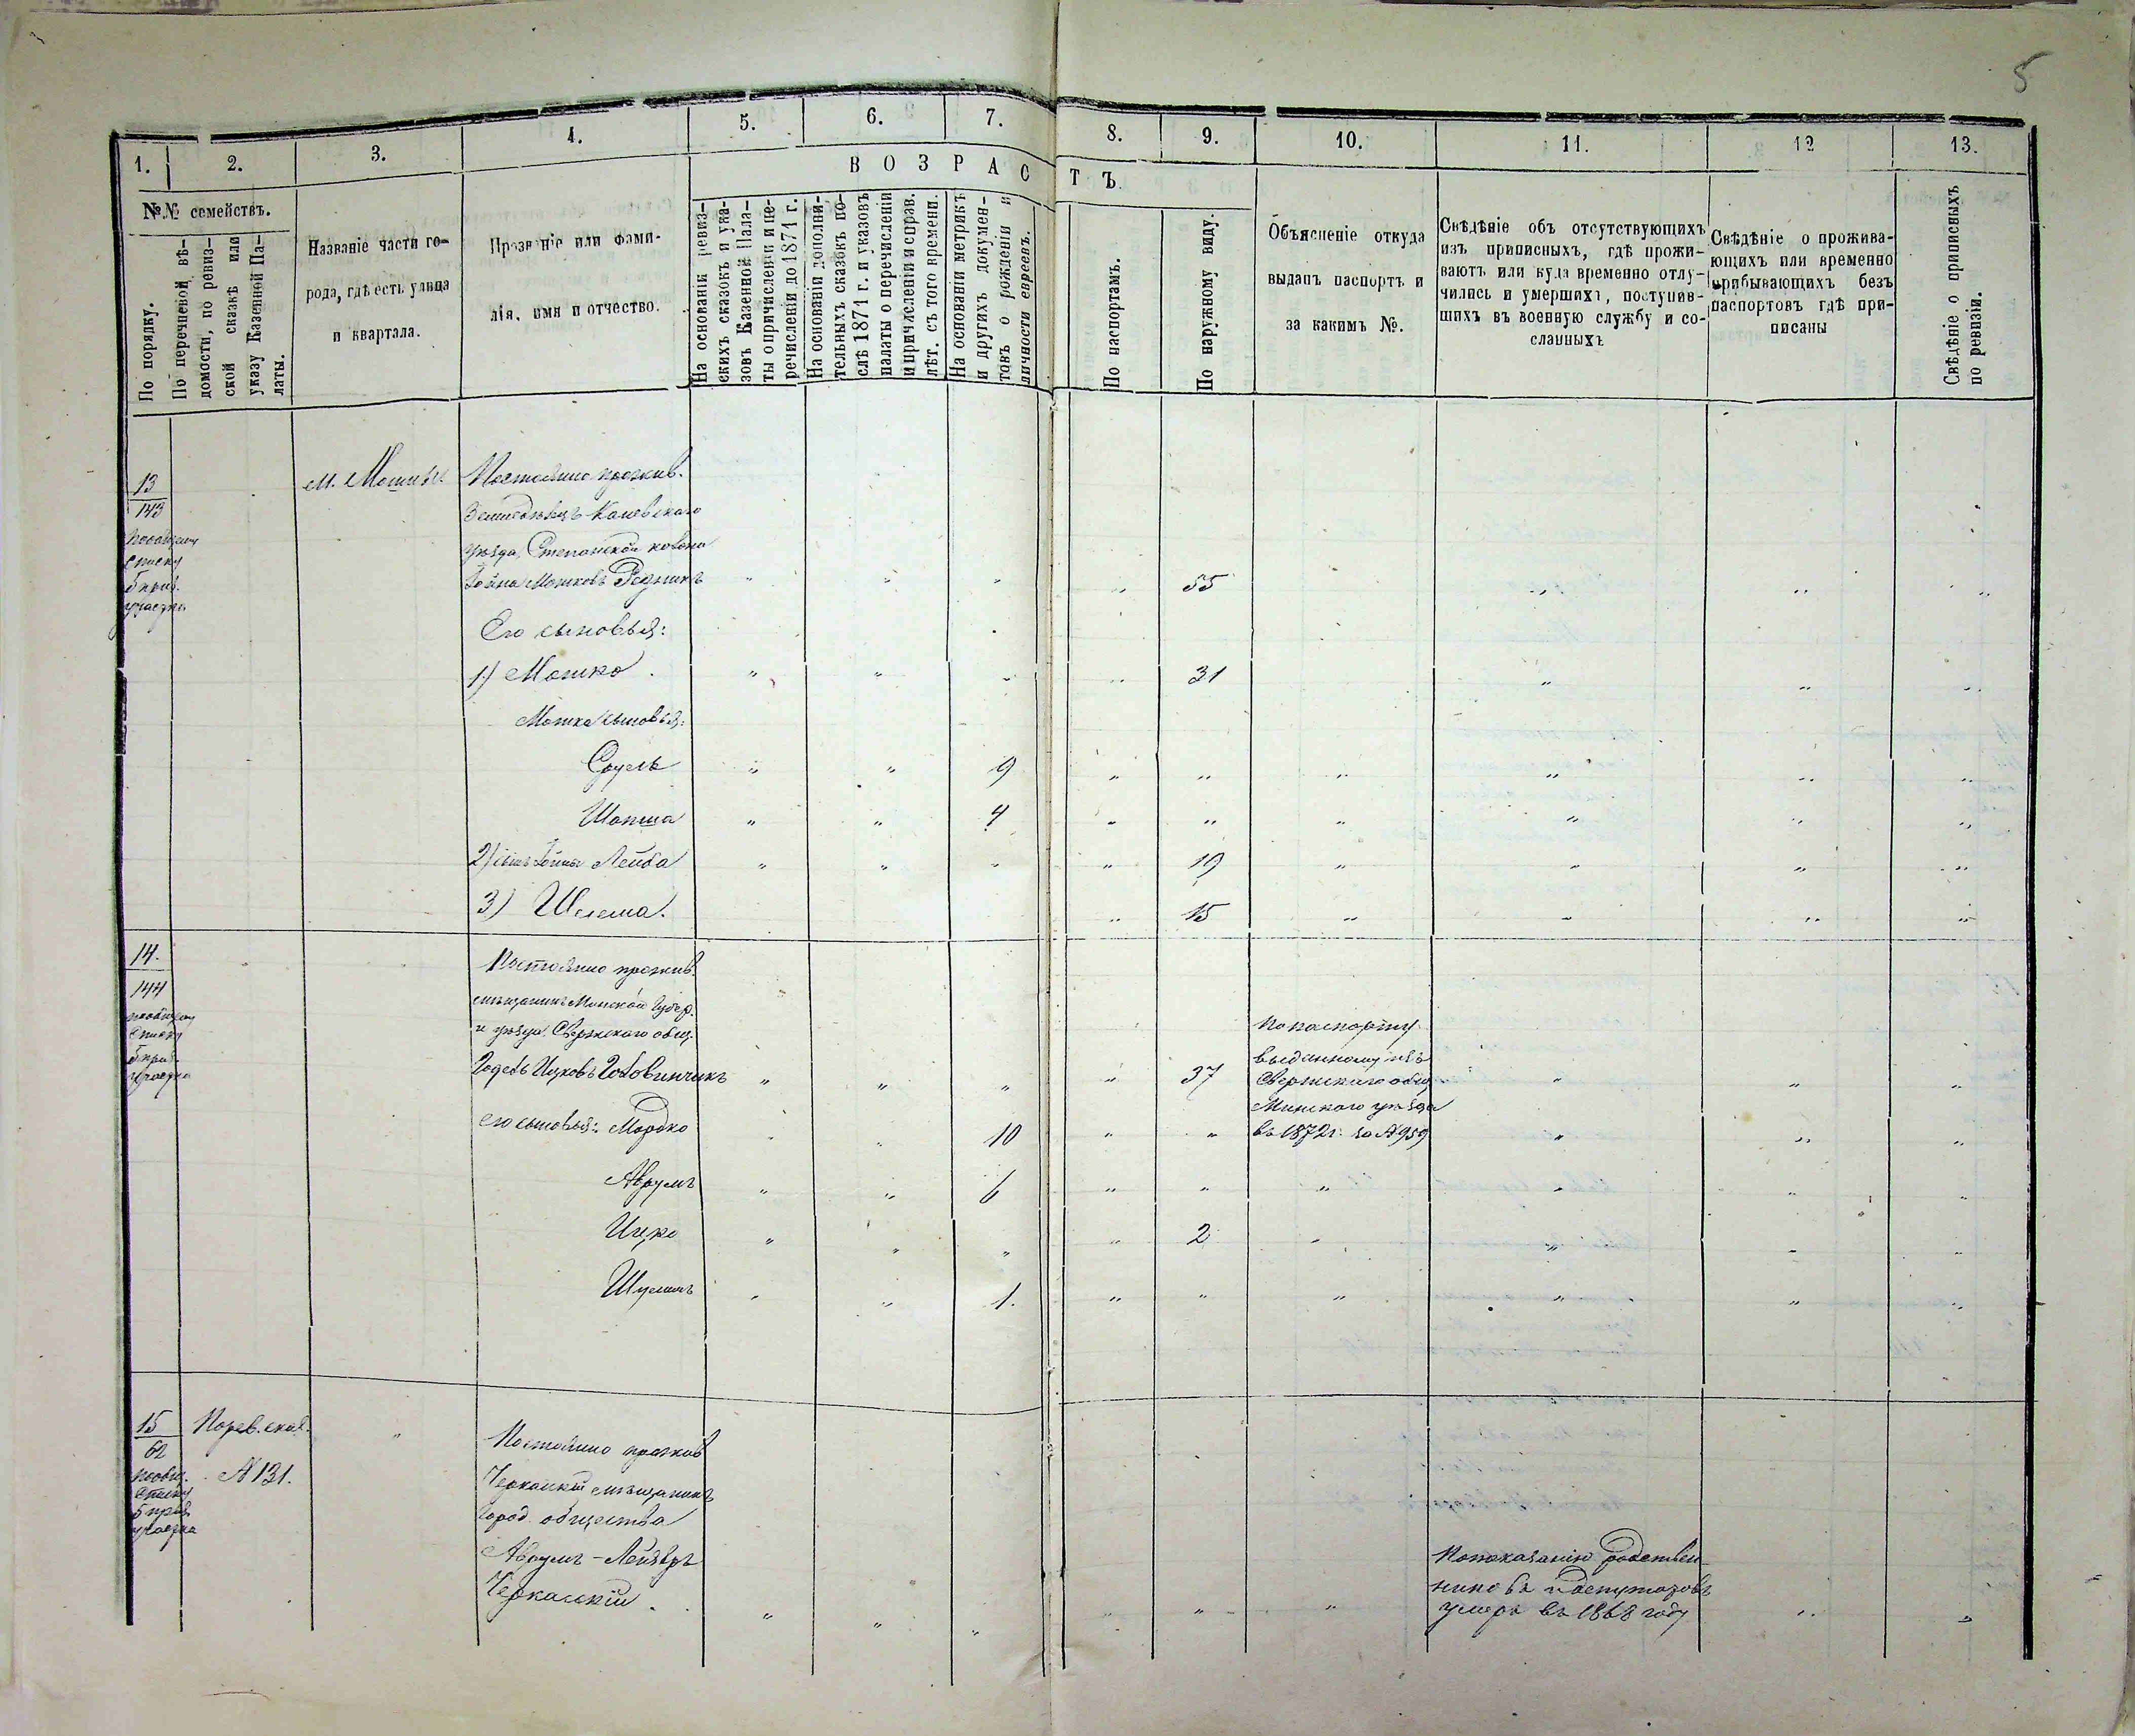 5
1. 2. 3. 4. 5. 6. 7. 8. 9. 10. 11. 12 13.
ВОЗРАСТЪ.
№№ семействъ.
По порядку.
По перечневой вѣ-
домости, по ревиз-
ской сказкѣ или
указу Казенной Па-
латы.
Названіе части го-
рода, гдѣ есть улица
и квартала.
Прозваніе или фами-
лія, имя и отчество.
На основаніи ревиз-
скихъ сказокъ и ука-
зовъ Казенной Пала-
ты о причисленіи и пе-
речисленіи до 1871 г.
На основаніи дополни-
тельныхъ сказокъ по-
слѣ 1871 г. и указовъ
палаты о перечисленіи
и причисленіи и справ.
лѣт. съ того времени.
На основаніи метрикъ
и другихъ докумен-
товъ о рожденіи и
личности евреевъ.
По паспортамъ.
По наружному виду.
Объясненіе откуда
выданъ паспортъ и
за какимъ №.
Свѣдѣніе объ отсутствующихъ
изъ приписныхъ, гдѣ прожи-
ваютъ или куда временно отлу-
чились и умершихъ, поступив-
шихъ въ военную службу и со-
сланныхъ
Свѣдѣніе о прожива-
ющихъ или временно
прибывающихъ безъ
паспортовъ гдѣ при-
писаны
Свѣдѣніе о приписныхъ
по ревизіи.
13
143
по общему
списку
5 приз.
участка
м. Мошны.
Постоянно прожив.
Земледѣлецъ Каневскаго
уѣзда, Степанской
Іойна Мошковъ Рѣзникъ " " " " 55 " " "
Его сыновья:
1) Мошко. " " " " 31 " " "
Мошка сыновья:
Сруль " " 9 " " " " " "
Шапша " " 4 " " " " " "
2) сынъ Іойны Лейба " " " " 19 " " " "
3) Шлема. " 15 " " " "
14.
144
по общему
списку
5 приз.
участка
Постоянно прожив.
мѣщанинъ Минской Губер.
и уѣзда Свержскаго общ.
Годель Ицковъ Головинчикъ " " " " 37
По паспорту
выданному изъ
Свержскаго общ.
Минскаго уѣзда
въ 1872 г. за № 959
" " "
его сыновья: Мордко " " 10 " " " " "
Аврумъ " " 6 " " " " " "
Ицко " " " " 2 " " " "
Шулимъ " " 1. " " " " " "
15
62
по общ.
списку
5 приз.
участка
№ 131.
"
Постоянно прожив
Черкаскій мѣщанинъ
город. общества
Аврумъ-Лейзеръ
Черкаскій. " " " " " "
По показанію родствен-
никовъ и депутатовъ
умеръ въ 1868 году
" "